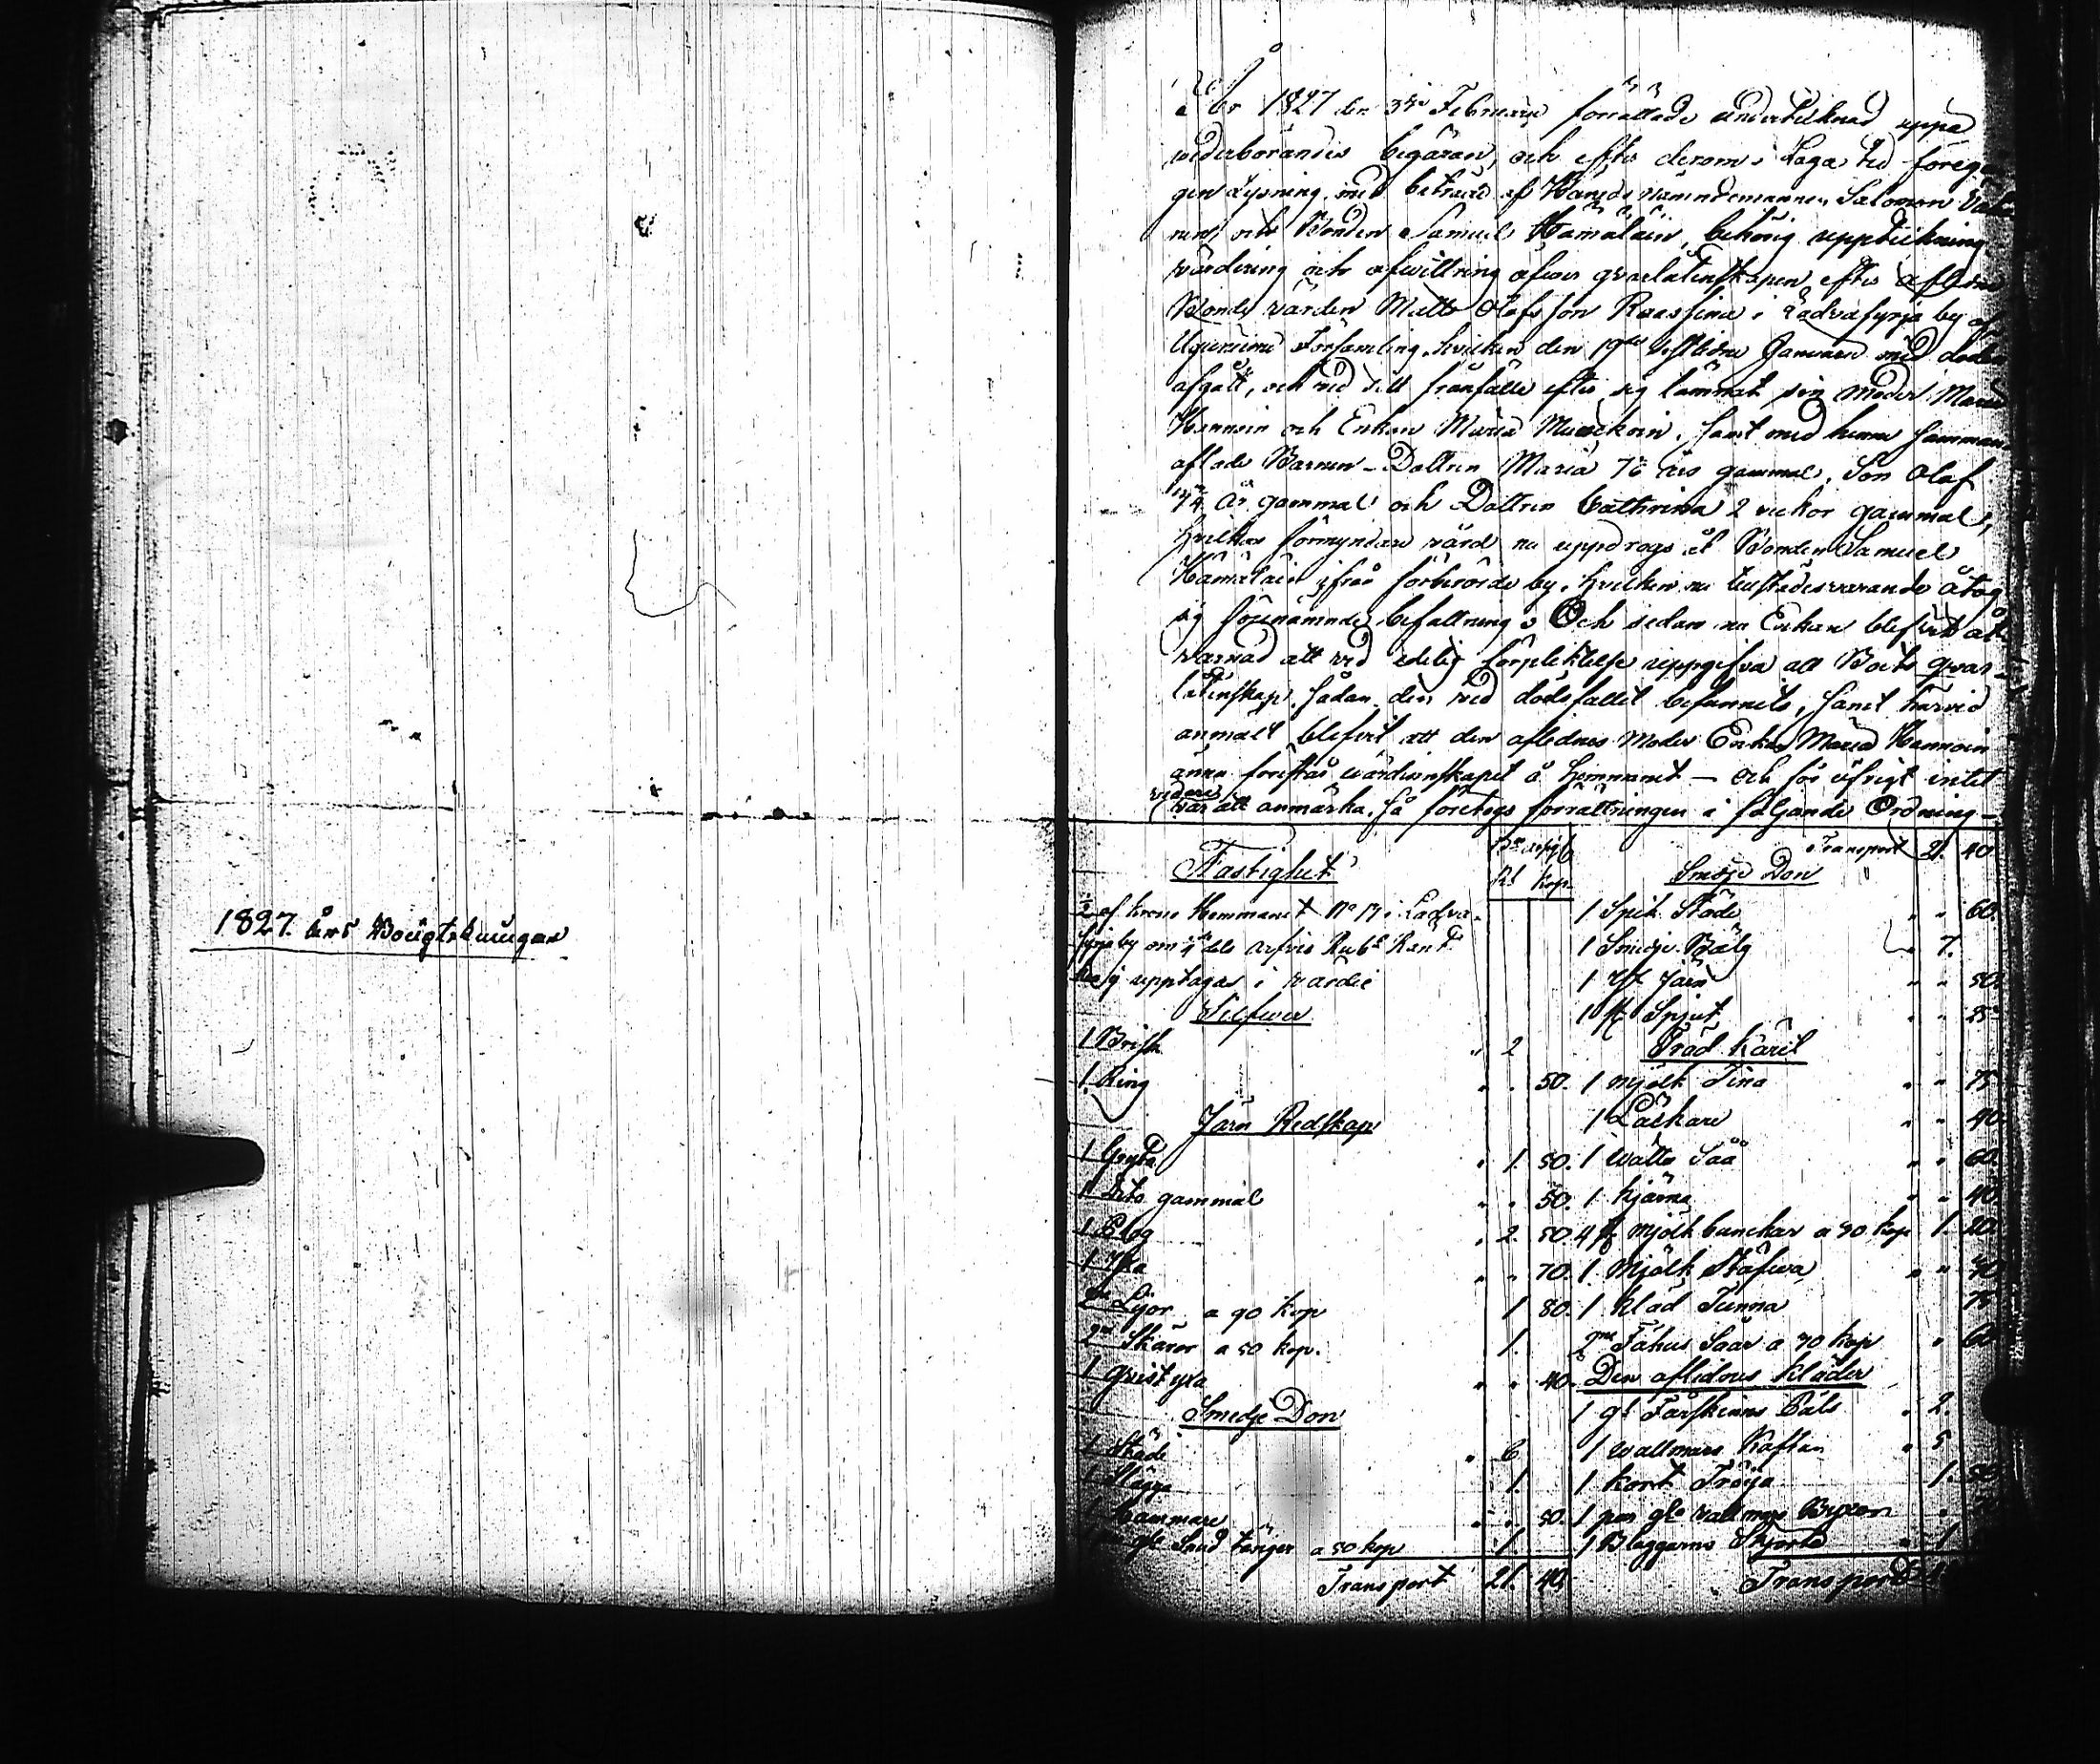 1827 års Bougtekningar
År 1827 den 3die Februarii förrättade undertecknad uppå
vederbörandes begäran, och efter derom i Laga tid föregån-
gen Lysning, med biträde af Härads nämndemannen Salomon
och Bonden Samuel Hämäläin, behörig uppteckning
värdering och afwittring öfwer qvarlåtenskapen efter aflidne
Bonde värden Matts Olofsson Raassina i Ladvasyrja by af
Församling, hvilken den 19de sistledne Januarii med döden
afgått, och vid sitt frånfälle efter sig lämnat sin Moder Maria
Hannoin och Enkan Maria samt med henne samman
aflade Barnen - Dottren Maria års gammal, Son Olof
år gammal och Dottren Cathrina 2 veckor gammal,
hvilkas förmyndare vård nu uppdrogs åt Bonden Samuel
Hämäläin ifrån förberörde by, hvilken nu tillstädesvarande åtog
sig förenämnde befattning. Och sedan nu Enkan blifvit åt-
varnad att vid edelig förpliktelse uppgifva all Boets qvar-
låtenskap, sådan den vid dödsfallet befunnits, samt härvid
anmält blifvit att den aflidnes Moder Enkan Maria Hannoin
ännu förestår värdinnskapet å hemmanet — och för öfrigt intet
vidare var att anmärka, så företogs förrättningen i följande Ordning —
Fastighet
Rl Kop.
1/2 af Krono Hemmanet No 17 i Ladva-
syrja by om dels arfvis Rubl Ränt
ej upptagas i värde
Silfwer
1 Brisk " 2
1 Ring " . 50.
Järn Redskap
1 Gryta " 1. 50.
1 Dito gammal " . 50.
1 Plog " 2. 50
1 Yxa " " 70.
2ne Lijor a 90 kop 1 80.
2ne Skäror a 50 kop. 1.
1 qvist yxa " " 40.
Smedje Don
1 Städe " 6
1 Slägga 1.
1 Hammare " " 50.
gle Smid tänger a 50 kop 1.
Transport 21. 40
Transport 21. 40
Smedje Don
1 Spik Städe " " 60.
1 Smedje Bälg " 7.
1 Järn " " 50.
1 st Spjut " " 25
Träd Käril
1 mjölk Tina " " 75
1 Läskare " " 40
1 watts Såå " " 60.
1 kjärna " " 40
4 st mjölk bunckar a 30 kop 1. 20.
1 Mjölk Stäfwa " " 40
1 Kläd Tunna 75
2ne Fähus Såar a 30 kop " 60
Den aflidnes Kläder
1 gl Fårskinns Päls " 2.
1 wallmars Kaftan " 5
1 kort Tröja 1. 50
1 par gle vallmars Byxor "
1 Blaggarns Skjorta " 1
Transport